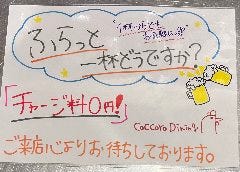 ふらっと
一杯どうですか？
「チャージ料0円！」
Coccoro Dining
ご来店心よりお待ちしております。